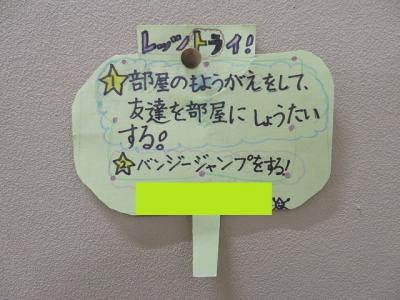 レッツトライ!
1 部屋のもようがえをして、
友達を部屋に しょうたい
する。
2 バンジージャンプをする!